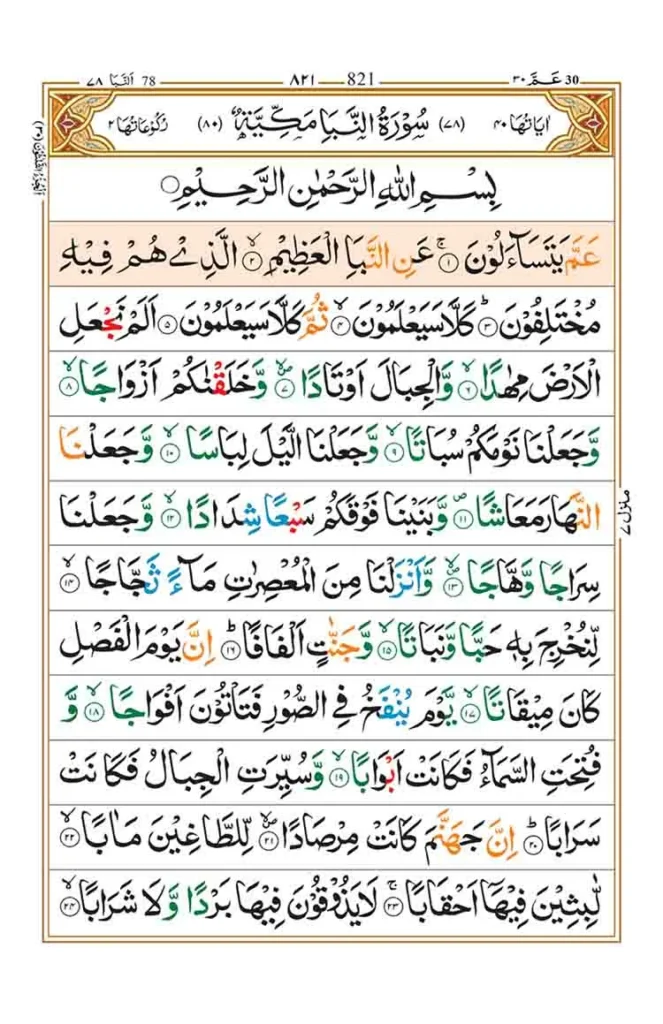 ٧٨ اَلنَّبَا 78 ٨٢١ 821 ٣٠ عَمَّ 30
اٰیَاتُهَا ٤٠ (٧٨) سُوْرَةُ النَّبَاِ مَكِّیَّةٌ (٨٠) رُكُوْعَاتُهَا ٢
اَلْجُزْءُ الثَّلٰثُوْنَ (٣٠)
بِسْمِ اللّٰهِ الرَّحْمٰنِ الرَّحِیْمِ
عَمَّ یَتَسَآءَلُوْنَ ۚ﴿١﴾ عَنِ النَّبَاِ الْعَظِیْمِ ۙ﴿٢﴾ الَّذِیْ هُمْ فِیْهِ
مُخْتَلِفُوْنَ ؕ﴿٣﴾ كَلَّا سَیَعْلَمُوْنَ ۙ﴿٤﴾ ثُمَّ كَلَّا سَیَعْلَمُوْنَ ﴿٥﴾ اَلَمْ نَجْعَلِ
الْاَرْضَ مِهٰدًا ۙ﴿٦﴾ وَّ الْجِبَالَ اَوْتَادًا ۪ۙ﴿٧﴾ وَّ خَلَقْنٰكُمْ اَزْوَاجًا ۙ﴿٨﴾
وَّ جَعَلْنَا نَوْمَكُمْ سُبَاتًا ۙ﴿٩﴾ وَّ جَعَلْنَا الَّیْلَ لِبَاسًا ۙ﴿١٠﴾ وَّ جَعَلْنَا
النَّهَارَ مَعَاشًا ۪﴿١١﴾ وَّ بَنَیْنَا فَوْقَكُمْ سَبْعًا شِدَادًا ۙ﴿١٢﴾ وَّ جَعَلْنَا
سِرَاجًا وَّهَّاجًا ۪ۙ﴿١٣﴾ وَّ اَنْزَلْنَا مِنَ الْمُعْصِرٰتِ مَآءً ثَجَّاجًا ۙ﴿١٤﴾
لِّنُخْرِجَ بِهٖ حَبًّا وَّ نَبَاتًا ۙ﴿١٥﴾ وَّ جَنّٰتٍ اَلْفَافًا ؕ﴿١٦﴾ اِنَّ یَوْمَ الْفَصْلِ
كَانَ مِیْقَاتًا ۙ﴿١٧﴾ یَّوْمَ یُنْفَخُ فِی الصُّوْرِ فَتَاْتُوْنَ اَفْوَاجًا ۙ﴿١٨﴾ وَّ
فُتِحَتِ السَّمَآءُ فَكَانَتْ اَبْوَابًا ۙ﴿١٩﴾ وَّ سُیِّرَتِ الْجِبَالُ فَكَانَتْ
سَرَابًا ؕ﴿٢٠﴾ اِنَّ جَهَنَّمَ كَانَتْ مِرْصَادًا ۪ۙ﴿٢١﴾ لِّلطَّاغِیْنَ مَاٰبًا ۙ﴿٢٢﴾
لّٰبِثِیْنَ فِیْهَاۤ اَحْقَابًا ۚ﴿٢٣﴾ لَا یَذُوْقُوْنَ فِیْهَا بَرْدًا وَّ لَا شَرَابًا ۙ﴿٢٤﴾
منزل ٧